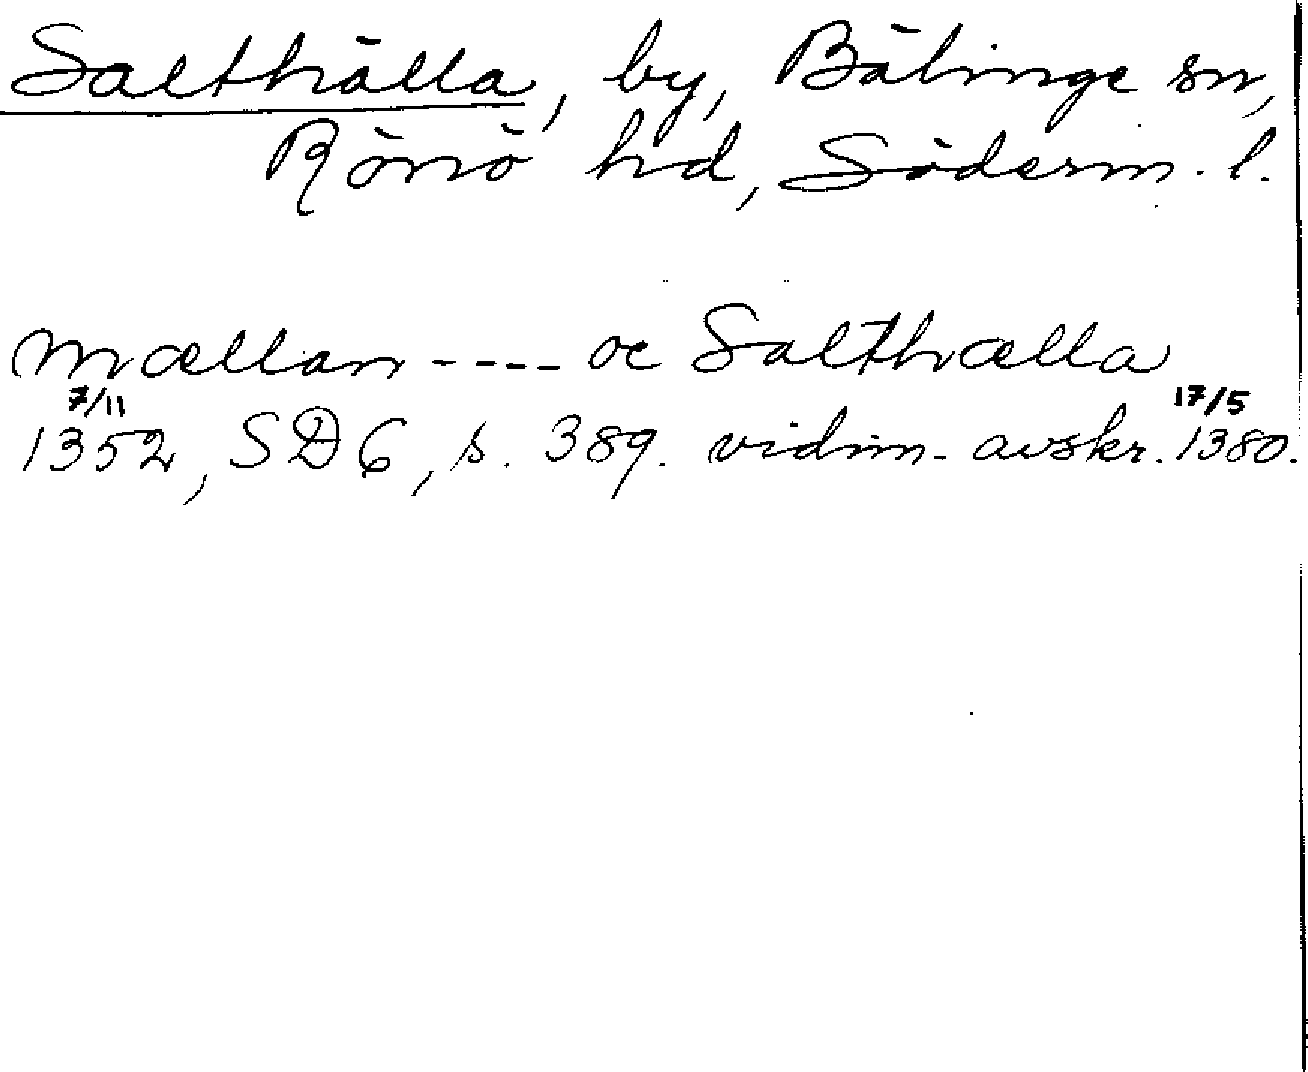 Salthälla, by, Bälinge sn,
Rönö hd, Söderm. l.
mællan ---- oc Salthælla
7/11 17/5
1352, SD 6, s. 389. vidim. avskr. 1380.